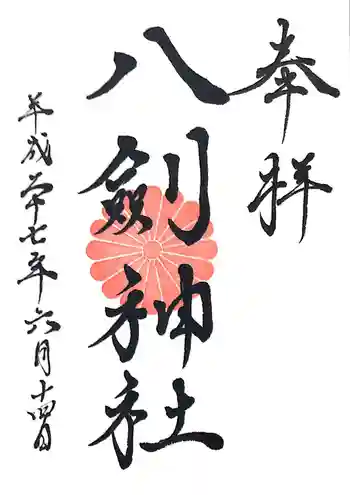 奉拝
八劍神社
平成廿七年六月十四日